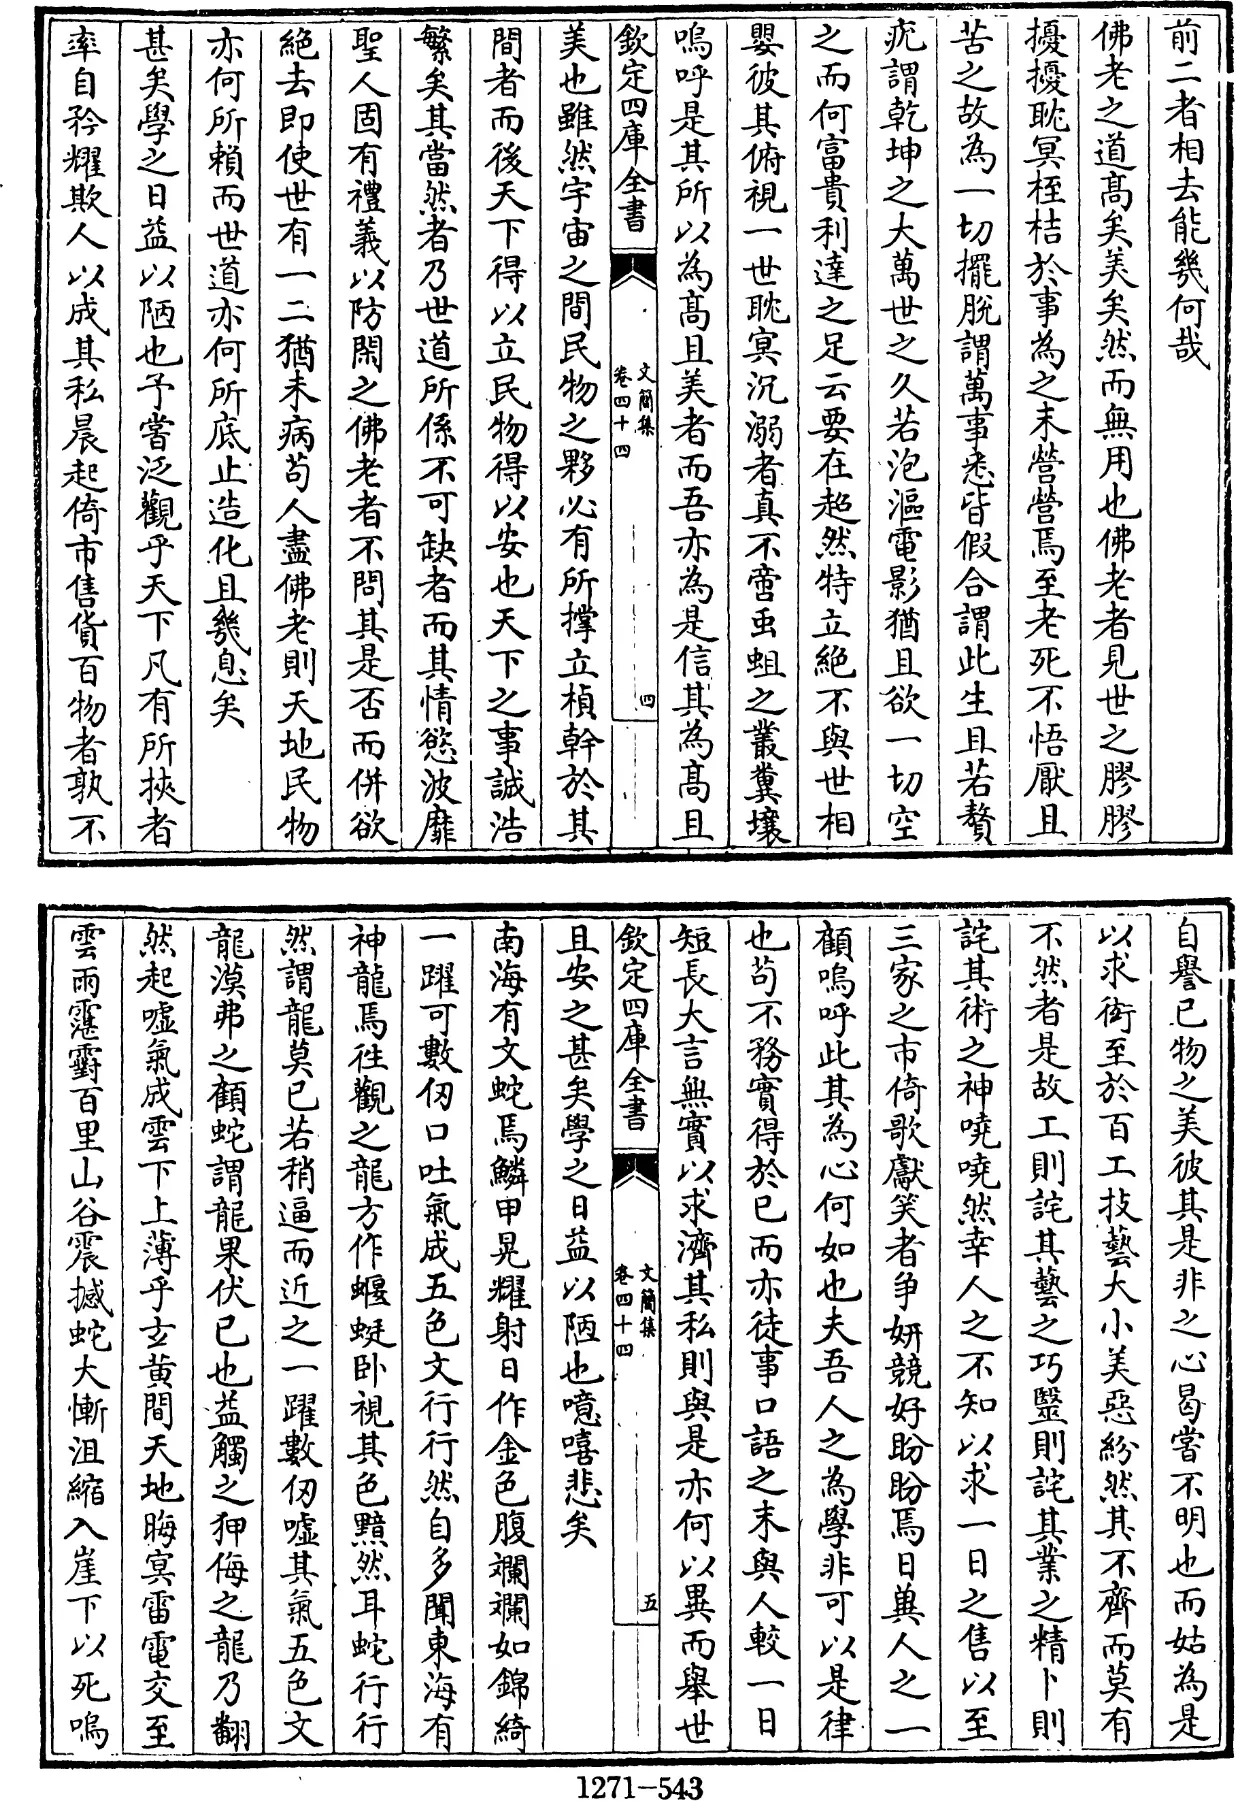 前二者相去能幾何哉
佛老之道髙矣美矣然而無用也佛老者見世之膠膠
擾擾眈冥桎梏於事為之末營營焉至老死不悟厭且
苦之故為一切擺脫謂萬事悉皆假合謂此生且若贅
疣謂乾坤之大萬世之久若泡漚電影猶且欲一切空
之而何富貴利達之足云要在超然特立絶不與世相
嬰彼其俯視一世眈冥沉溺者真不啻虫蛆之叢糞壤
嗚呼是其所以為髙且美者而吾亦為是信其為髙且
欽定四庫全書
文簡集
卷四十四
四
美也雖然宇宙之間民物之夥必有所撑立楨幹於其
間者而後天下得以立民物得以安也天下之事誠浩
繁矣其當然者乃世道所係不可缺者而其情慾波靡
聖人固有禮義以防閑之佛老者不問其是否而併欲
絶去即使世有一二猶未病苟人盡佛老則天地民物
亦何所賴而世道亦何所底止造化且幾息矣
甚矣學之日益以陋也予嘗泛觀乎天下凡有所挾者
率自矜耀欺人以成其私晨起倚市售貨百物者孰不
自譽已物之美彼其是非之心曷嘗不明也而姑為是
以求衒至於百工技藝大小美惡紛然其不齊而莫有
不然者是故工則詫其藝之巧醫則詫其業之精卜則
詫其術之神嘵嘵然幸人之不知以求一日之售以至
三家之市倚歌獻笑者争妍競好盼盼焉日兾人之一
顧嗚呼此其為心何如也夫吾人之為學非可以是律
也苟不務實得於已而亦徒事口語之末與人較一日
短長大言無實以求濟其私則與是亦何以異而舉世
欽定四庫全書
文簡集
卷四十四
五
且安之甚矣學之日益以陋也噫嘻悲矣
南海有文蛇焉鱗甲晃耀射日作金色腹斕斕如錦綺
一躍可數仞口吐氣成五色文行行然自多聞東海有
神龍焉往觀之龍方作蝘蜓卧視其色黯然耳蛇行行
然謂龍莫已若稍逼而近之一躍數仞嘘其氣五色文
龍漠弗之顧蛇謂龍果伏已也益觸之狎侮之龍乃翻
然起嘘氣成雲下上薄乎𤣥黄間天地晦冥雷電交至
雲雨霮霨百里山谷震撼蛇大慚沮縮入崖下以死嗚
1271-543